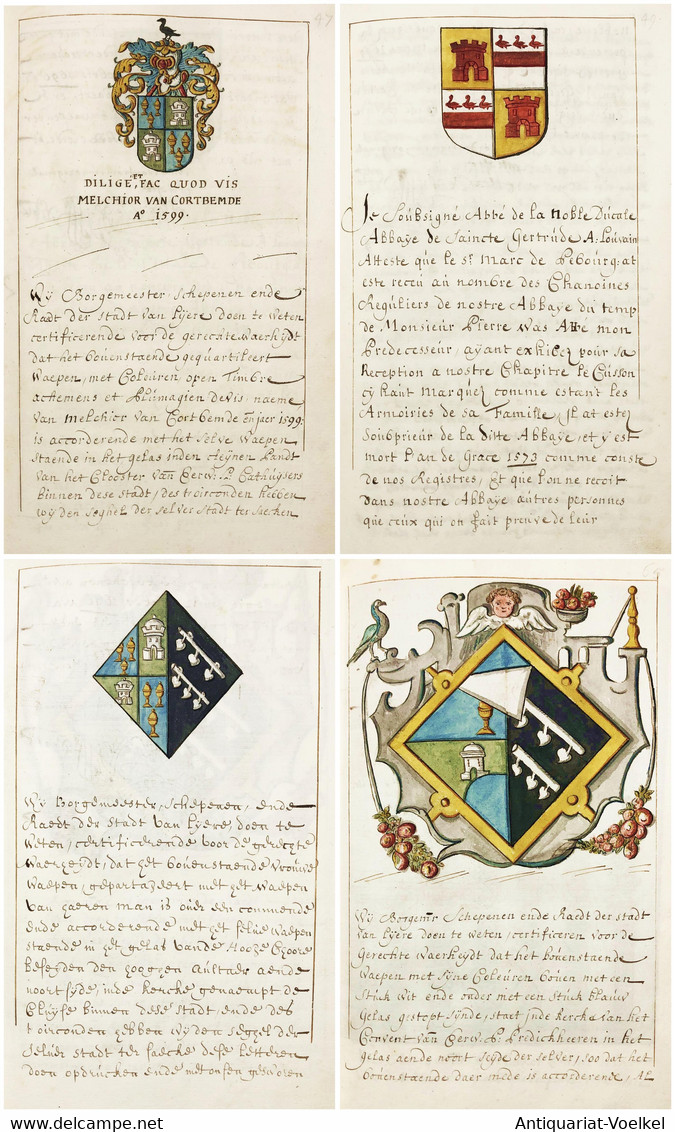 47
DILIGE, ET FAC QUOD VIS
MELCHIOR VAN CORTBEMDE
Aº 1599.
Wij Borgemeester, Schepenen ende
Raedt der stadt van Lyere doen te weten
certificerende voor de gerechte waerheydt
dat het bouenstaende gequartileert
Waepen, met Coleuren open Timbre
achemens et Plumagien devis, naeme
van Melchior van Cortbemde en jaer 1599.
is accorderende met het selve Waepen
staende in het gelas inden cleynen Pandt
van het Clooster van Eerw. P. Cathuysers
binnen dese stadt, des t'oirconden hebben
wy den seghel der selver stadt ter saecken
49
Je Soubsigné Abbé de la Noble Ducale
Abbaye de Saincte Gertrude A: Louvain
Atteste que le Sr Marc de
este receu au nombre des Chanoines
Reguliers de nostre Abbaye du temp
de Monsieur Pierre Was Abbé mon
Predecesseur, ayant exhibez pour sa
Reception a nostre Chapitre le Cusson
cy hault Marquez comme estant les
Armoiries de sa Famille, Il at estez
Soubprieur de la ditte Abbaye, et y est
mort l'an de Grace 1573 comme conste
de nos Registres, Et que l'on ne recoit
dans nostre Abbaye autres personnes
que ceux qui on fait preuve de leur
Wy Borgemeester, Schepenen, ende
Raedt der stadt van Lyere, doen te
weten, certificerende voor de gerechte
waerheydt, dat het bouenstaende vrouwe
waepen, gepartageert met het waepen
van haeren man is ouer een commende
ende accorderende met het selue waepen
staende in het gelas vande Hooge Choore
beseyden den hooghen aultaer aende
noort syde, inde kercke genaempt de
Cluyse binnen dese stadt, ende des
t'oirconden hebben wy den seghel der
seluer stadt ter saecke dese letteren
doen opdrucken ende met onsen gesworen
Wy Borgemrs Schepenen ende Raedt der stadt
van Lyere doen te weten, certificeren voor de
Gerechte Waerheydt dat het bouenstaende
Waepen met syne Coleuren bouen met een
Stuck wit ende onder met een stuck blauw
Gelas gestopt synde, staet inde kercke van het
Convent van Eerw. P: Predickheeren in het
gelas aende noort seyde der selver, soo dat het
bouenstaende daer mede is accorderende, Al
Antiquariat-Voelkel